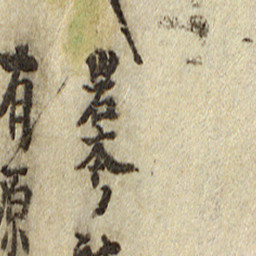 岩本ノ
有原